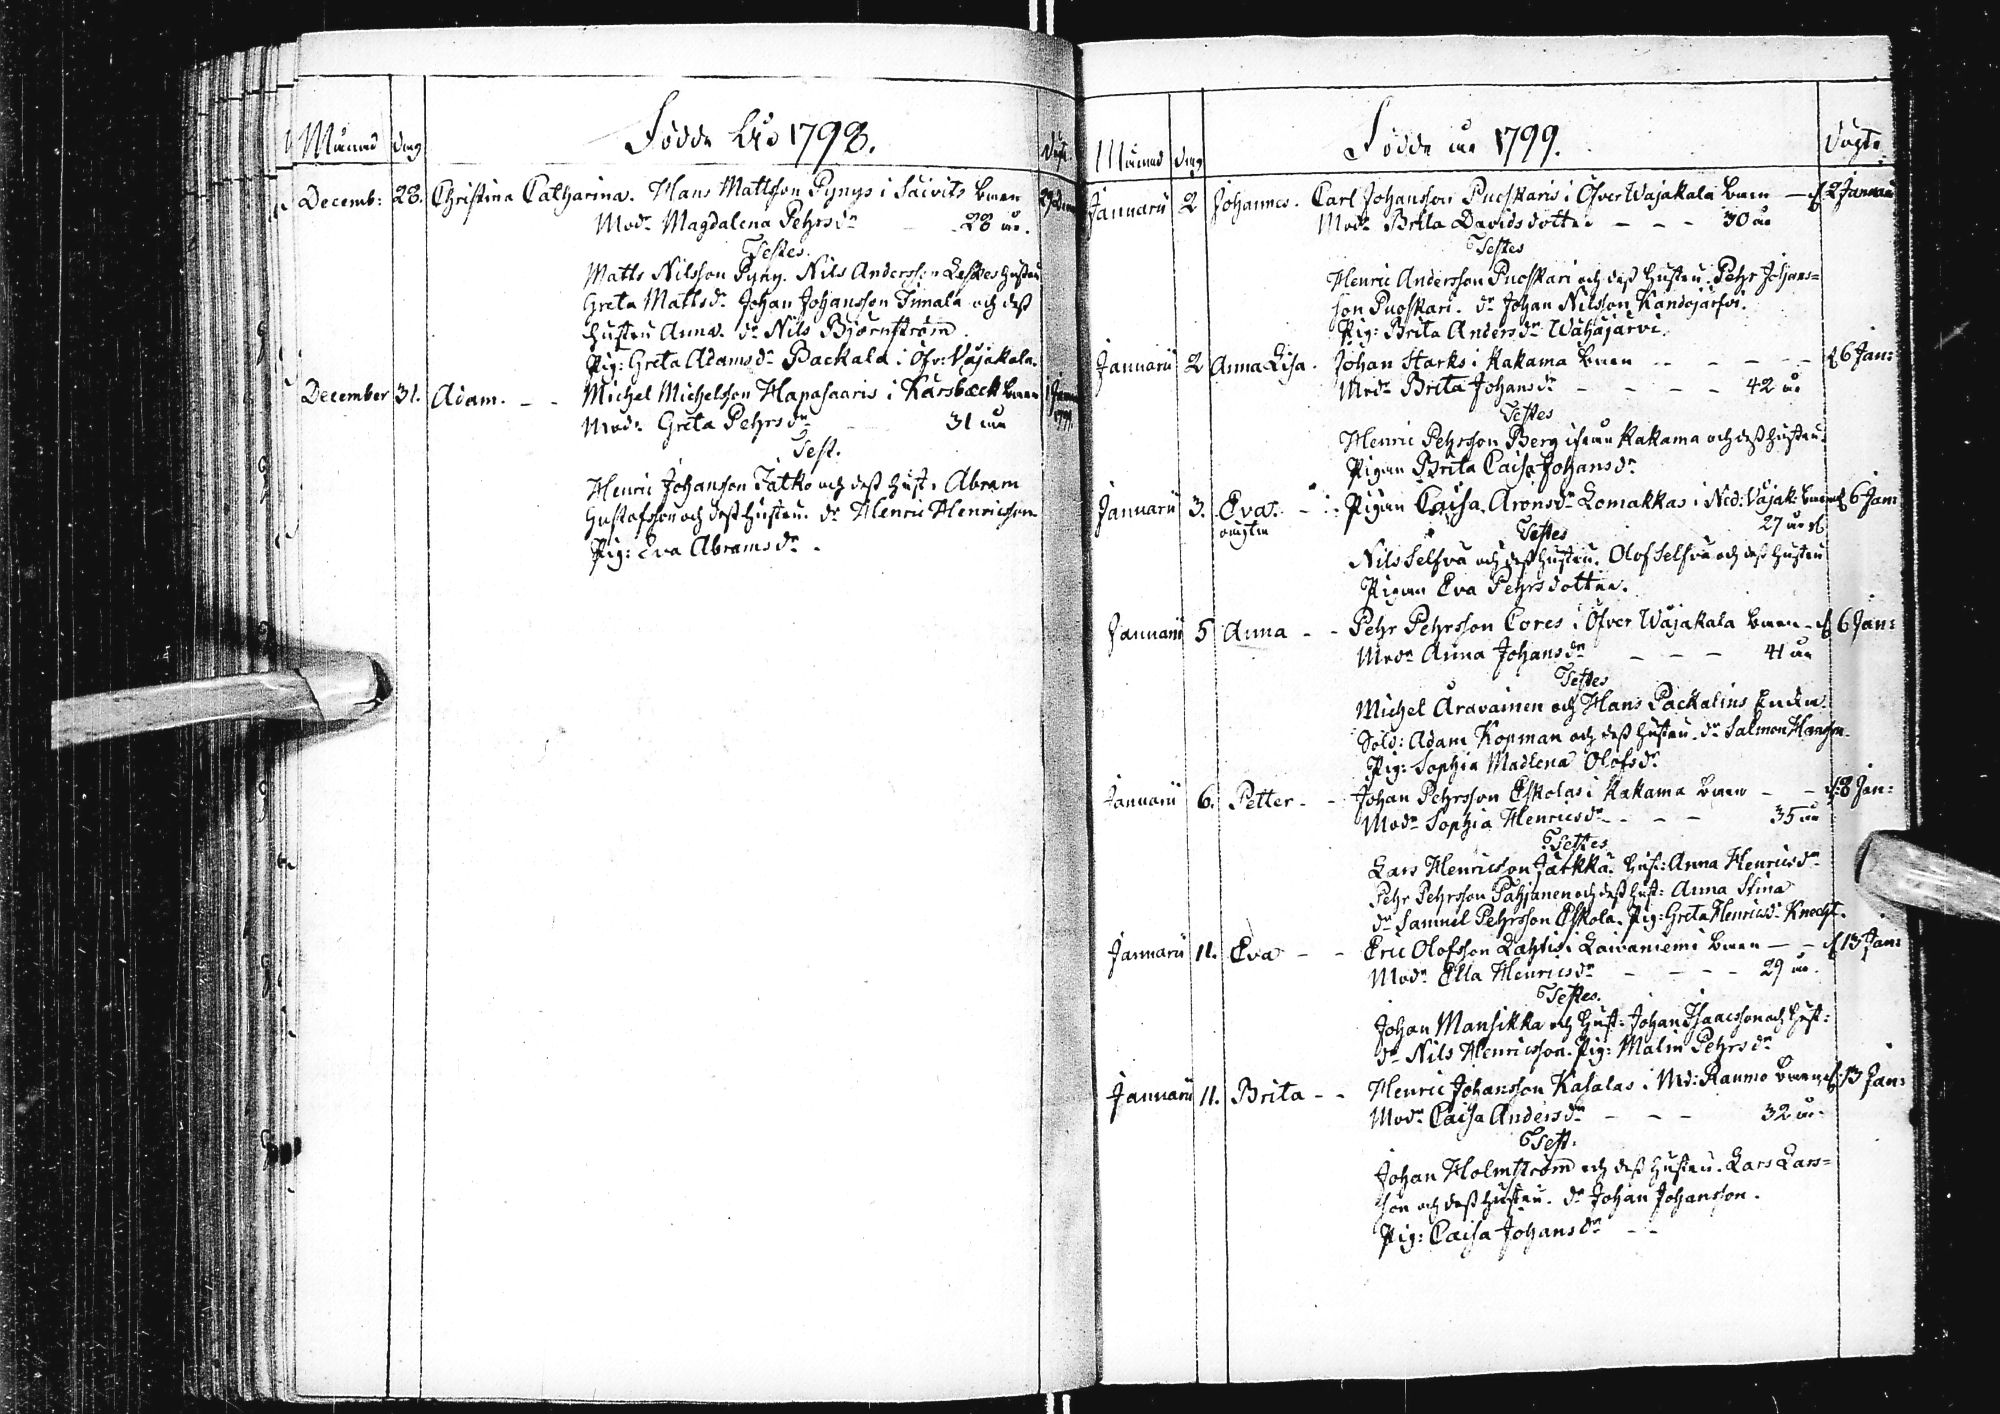 Månad dag Födde åhr 1798. döpt
Decemb: 28. Christina Catharina. Hans Mattsson Pynys i Säivits barn 29 Decem
Modr Magdalena Pehrsdr 28 år.
Testes.
Matts Nilsson Pyny. Nils Andersson hustru
Greta Mattsdr Johan Johansson Timala och dess
hustru Anna. dr Nils Björnström.
Pig: Greta Adamsdr Packala i Öfv: Wäjakala.
December 31. Adam. - - Michel Michelsson Hapasaaris i Karsbäck barn 1 Januar
Modr Greta Pehrsdr 31 år 1799
Test.
Henric Johansson Jatko och dess hust: Abram
Gustafsson och dess hustru. dr Henric Henricsson
Pig: Eva Abramsdr.
Månad dag Födde år 1799. döpte
Januarii 2 Johannes. Carl Johansson Puoskaris i Öfver Wäjakala barn - d 2 Januarii
Modr Brita Davidsdotter - - - 30 år
Testes
Henric Andersson Puoskari och dess hustru. Pehr Johans=
son Puoskari. dr Johan Nilsson Kandojärfvi.
Pig: Brita Andersdr Wähäjärvi.
Januarii 2 Anna Lisa. Johan Starks i Kakama barn - - - - d 6 Jan:
Modr Brita Johansdr - - - - 42 år
Testes
Henric Pehrsson Berg ifrån Kakama och dess hustru.
Pigan Brita Caisa Johansdr
Januarii 3. Eva. - Pigan Caisa Aronsdr Lomakkas i Ned: Wäjak: barn d 6 Jan:
oägta 27 år
Testes
Nils Selfvä och dess hustru. Olof Selfvä och dess hustru
Pigan Eva Pehrsdotter.
Januarii 5 Anna - - Pehr Pehrsson Cores i Öfver Wäjakala barn - d 6 Jan:
Modr Anna Johansdr - - - 41 år
Testes
Michel Aravainen och Hans Packalins Enka.
Sold: Adam Kopman och dess hustru. dr Salmon Hansson.
Pig: Sophia Madlena Olofsdr
Januarii 6. Petter - - Johan Pehrsson Eskolas i Kakama barn - - d: 8 Jan:
Modr Sophia Henricsdr - - - 35 år
Testes
Lars Henricsson Jarkkä. hust: Anna Henricsdr
Pehr Pehrsson Pahjanen och dess hust: Anna Stina
dr Samuel Pehrsson Eskola. Pig: Greta Henricsdr Knecht.
Januarii 11. Eva - - Eric Olofsson Lahtis i Laivaniemi barn - - d 13 Jan:
Modr Ella Henricsdr - - - - 29 år.
Testes.
Johan Mansikka och hust: Johan Isaacsson och hust:
dr Nils Henricsson. Pig: Malin Pehrsdr
Januarii 11. Brita - - Henric Johansson Kasalas i Ned: Raumo barn d 13 Jan:
Modr Caisa Andersdr - - - 32 år.
Test.
Johan Holmström och dess hustru. Lars Lars=
son och dess hustru. dr Johan Johansson.
Pig: Caisa Johansdr - -